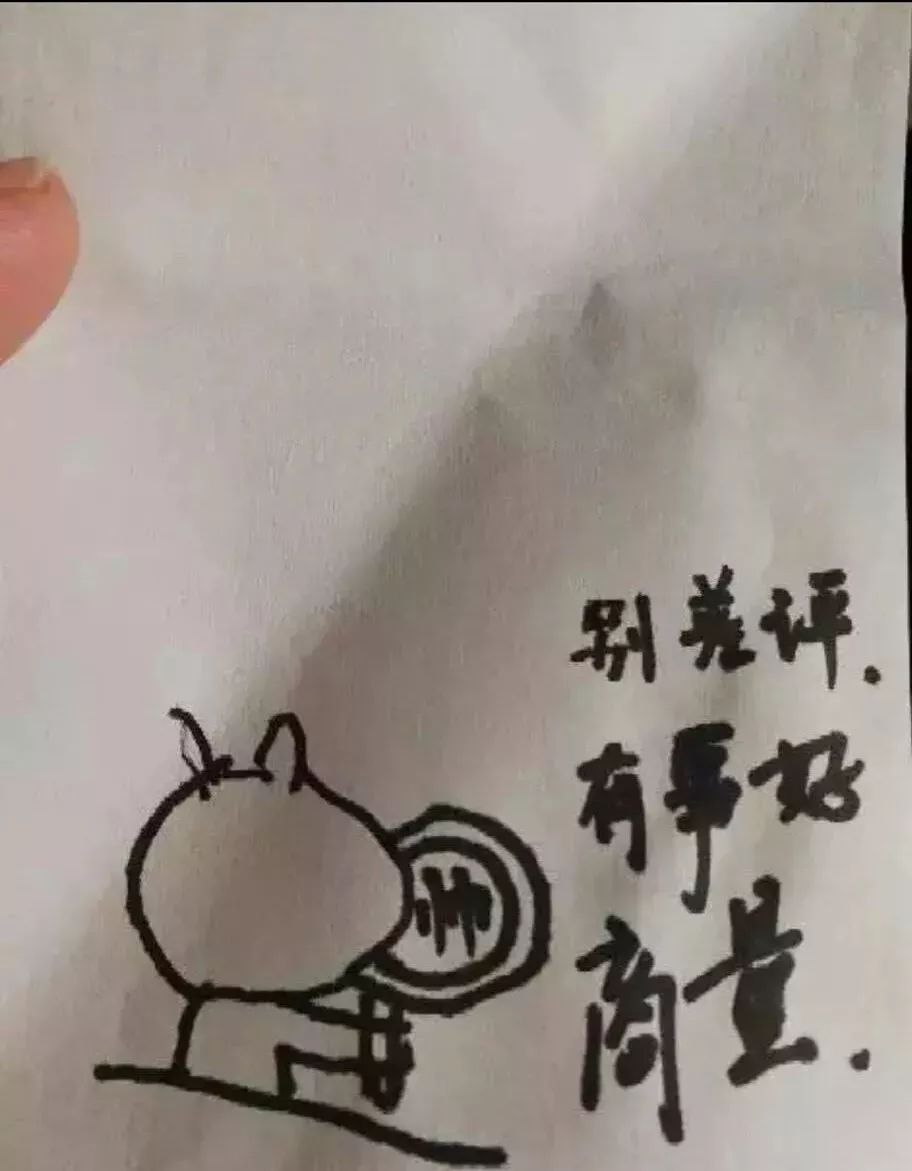 别差评.
有事好
商量.
帅